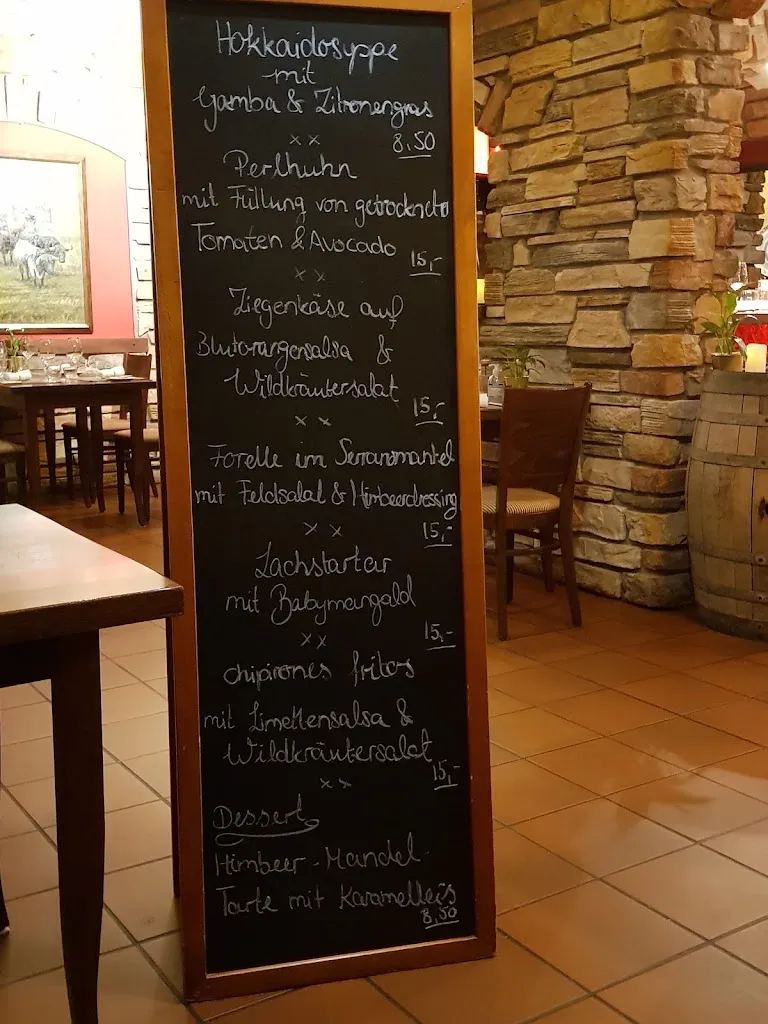 Hokkaidosuppe
mit
Gamba & Zitronengras
x x 8,50
Perlhuhn
mit Füllung von getrockneten
Tomaten & Avocado
15,-
x x
Ziegenkäse auf
Blutorangensalsa &
Wildkräutersalat
15,-
x x
Forelle im Serranomantel
mit Feldsalat & Himbeerdressing
x x 15,-
Lachstartar
mit Babymangald
x x 15,-
chipirones fritos
mit Limettensalsa &
Wildkräutersalat
x x 15,-
Dessert
Himbeer-Mandel-
Tarte mit Karamelleis
8,50